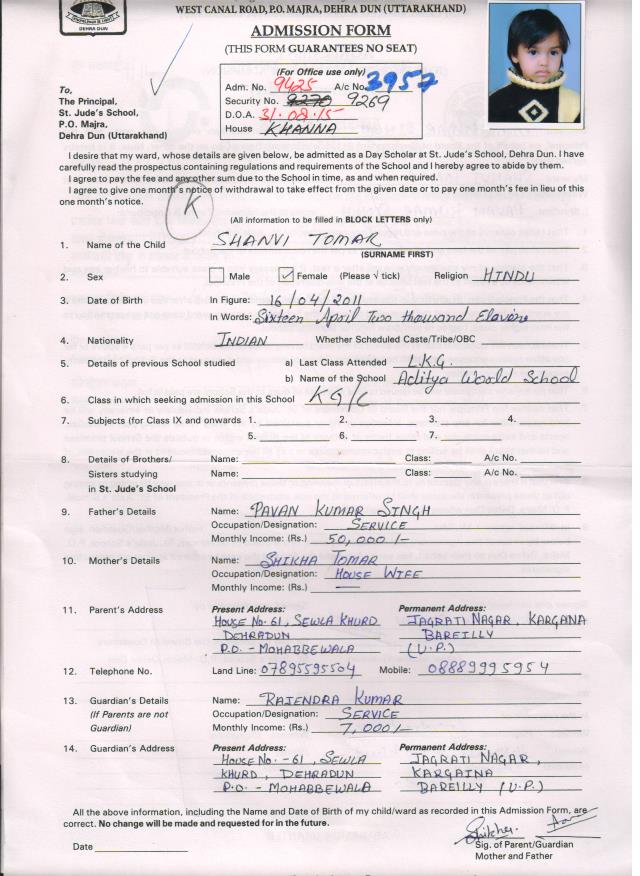 DEHRA DUN
WEST CANAL ROAD, P.O. MAJRA, DEHRA DUN (UTTARAKHAND)
ADMISSION FORM
(THIS FORM GUARANTEES NO SEAT)
(For Office use only)
Adm. No. 9425 A/c No. 3957
Security No. 9270 9269
D.O.A. 31.08.15
House KHANNA
To,
The Principal,
St. Jude's School,
P.O. Majra,
Dehra Dun (Uttarakhand)
I desire that my ward, whose details are given below, be admitted as a Day Scholar at St. Jude's School, Dehra Dun. I have
carefully read the prospectus containing regulations and requirements of the School and I hereby agree to abide by them.
I agree to pay the fee and any other sum due to the School in time, as and when required.
I agree to give one month's notice of withdrawal to take effect from the given date or to pay one month's fee in lieu of this
one month's notice.
K
(All information to be filled in BLOCK LETTERS only)
1. Name of the Child SHANVI TOMAR
(SURNAME FIRST)
2. Sex Male ✓ Female (Please √ tick) Religion HINDU
3. Date of Birth In Figure: 16/04/2011
In Words: Sixteen April Two thousand Elavine
4. Nationality INDIAN Whether Scheduled Caste/Tribe/OBC
5. Details of previous School studied a) Last Class Attended L.K.G.
b) Name of the School Aditya World School
6. Class in which seeking admission in this School KG/C
7. Subjects (for Class IX and onwards 1. 2. 3. 4.
5. 6. 7.
8. Details of Brothers/ Name: Class: A/c No.
Sisters studying Name: Class: A/c No.
in St. Jude's School
9. Father's Details Name: PAVAN KUMAR SINGH
Occupation/Designation: SERVICE
Monthly Income: (Rs.) 50,000/-
10. Mother's Details Name: SHIKHA TOMAR
Occupation/Designation: HOUSE WIFE
Monthly Income: (Rs.) —
11. Parent's Address Present Address: Permanent Address:
HOUSE NO. 61, SEWLA KHURD JAGRATI NAGAR, KARGANA
DEHRADUN BAREILLY
P.O. - MOHABBEWALA (U.P.)
12. Telephone No. Land Line: 07895595504 Mobile: 08889995954
13. Guardian's Details Name: RAJENDRA KUMAR
(If Parents are not Occupation/Designation: SERVICE
Guardian) Monthly Income: (Rs.) 7,000/-
14. Guardian's Address Present Address: Permanent Address:
HOUSE NO. - 61, SEWLA JAGRATI NAGAR,
KHURD, DEHRADUN KARGAINA
P.O. - MOHABBEWALA BAREILLY (U.P.)
All the above information, including the Name and Date of Birth of my child/ward as recorded in this Admission Form, are
correct. No change will be made and requested for in the future.
Date
Sig. of Parent/Guardian
Mother and Father